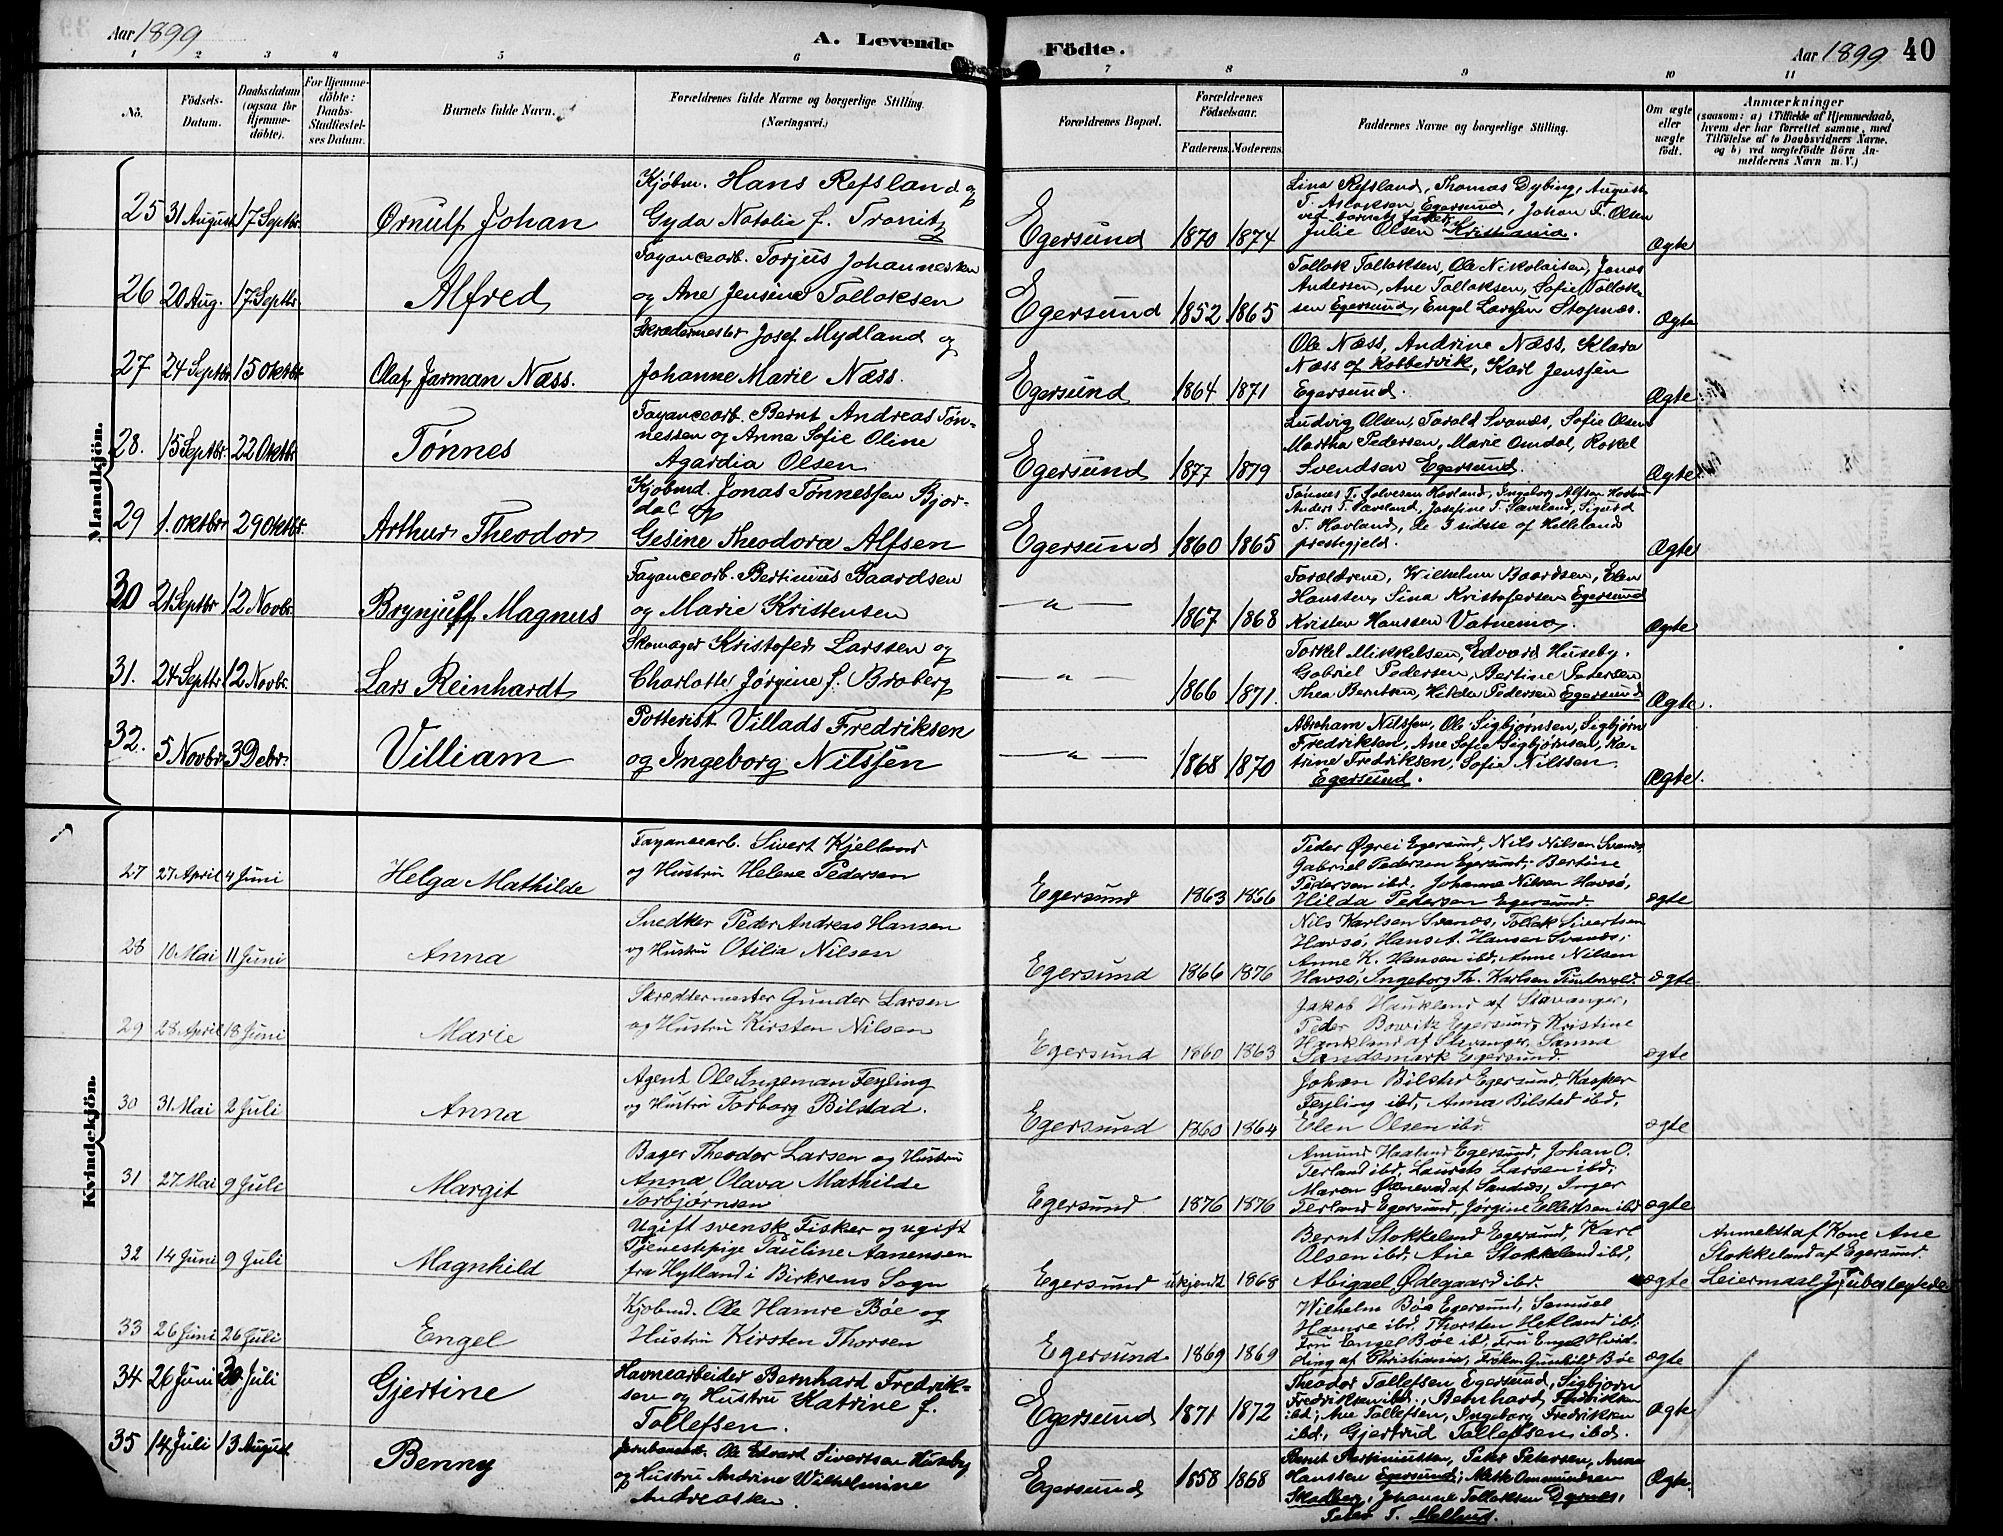 Aar 1899
A. Levende Födte.
Aar 1899 40
1 2 3 4 5 6 7 8 9 10 11
No.
Födsels-Datum.
Daabsdatum (ogsaa for Hjemme-döbte).
For Hjemme-döbte: Daabs-Stadfæstel-ses Datum.
Barnets fulde Navn.
Forældrenes fulde Navne og borgerlige Stilling. (Næringsvei.)
Forældrenes Bopæl.
Forældrenes Födselsaar.
Faderens. Moderens.
Faddernes Navne og borgerlige Stilling.
Om ægte eller uægte födt.
Anmærkninger
(saasom: a) i Tilfælde af Hjemmedaab,
hvem der har forrettet samme, med
Tilföielse af to Daabsvidners Navne.
og b) ved uægtefödte Börn An-
melderens Navn m. V.)
Mandkjön.
25 31 August 17 Septbr. Ørnulf Johan
Kjøbm. Hans Refsland og
Gyda Natalia f. Tranitz
Egersund 1870 1874
Lina Refsland, Thomas Dybing, August
T. Aslaksen, Egersund, Johan F. Olsen
ved barnets fader
Julie Olsen Kristiania.
Ægte
26 20 Aug. 17 Septbr Alfred
Fayancearb. Torjus Johannesen
og Ane Jensine Tollaksen
Egersund 1852 1865
Tollak Tollaksen, Ole Nikolaisen, Jonas
Andersen, Ane Tollaksen, Sofie Tollak-
sen Egersund, Engel Larssen Stapnæs.
Ægte
27 24 Septbr. 15 Oktbr Olaf Jarman Næss.
Skrædermester Josef Mydland og
Johanne Marie Næss.
Egersund 1864 1871
Ole Næss, Andrine Næss, Klara
Næss af Kobbervik, Karl Jenssen
Egersund.
Ægte
28. 15 Septbr. 22 Oktbr Tønnes
Fayancearb. Bernt Andreas Tøn-
nessen og Anna Sofie Oline
Agardia Olsen
Egersund 1877 1879
Ludvig Olsen, Tarald Svanæs, Sofie Olsen
Martha Pedersen, Marie Omdal, Rakel
Svendsen Egersund.
Ægte
29 1. Oktbr 29 Oktbr. Arthur Theodor
Kjøbmd. Jonas Tønnessen Bjor-
dal og
Gesine Theodora Alfsen
Egersund 1860 1865
Tønnes T. Salvesen Havland, Ingeborg Alfsen
Anders T. Saveland, Josefine T. Saveland, Sigurd
T. Havland, de 3 sidste af Helleland
prestegjeld.
Ægte
30 21 Septbr 12 Novbr. Brynjulf Magnus
Fayancearb. Bertinius Baardsen
og Marie Kristensen
— " — 1867 1868
Foraldrene, Wilhelm Baardsen, Elen
Hanssen, Sina Kristofersen Egersund
Kristen Hanssen Vatnemo.
Ægte
31. 24 Septbr 12 Novbr. Lars Reinhardt
Skomager Kristofer Larssen og
Charlotte Jørgine f. Broberg
— " — 1866 1871.
Torkel Mikkelsen, Edvard Huseby.
Gabriel Pedersen, Bertine Petersen
Thea Berntsen, Hilda Pedersen Egersund
Ægte.
32. 5 Novbr. 3 Debr. Villiam
Potterist Villads Fredriksen
og Ingeborg Nilssen
— " — 1868 1870
Abraham Nilssen, Ole Sigbjørnsen, Sigbjørn
Fredriksen, Ane Sofie Sigbjørnsen, Ka-
trine Fredriksen, Sofie Nilssen
Egersund.
Ægte.
Kvindekjön.
27 27 April 4 Juni Helga Mathilde
Fayancearb. Sivert Kjelland
og Hustru Helene Pedersen
Egersund 1863 1866
Peder Øgrei Egersund, Nils Nilsen Svanæs,
Gabriel Pedersen Egersund, Bertine
Pedersen ibd, Johanne Nilsen Havsø,
Hilda Pedersen Egersund.
ægte
28 10 Mai 11 Juni Anna
Snedker Peder Andreas Hansen
og Hustru Otilia Nilsen
Egersund 1866 1876
Nils Karlsen Svanæs, Tollak Sivertsen
Havsø, Hans A. Hansen Svanæs,
Anne K. Hansen ibd, Anne Nilsen
Havsø, Ingeborg Th. Karlsen
ægte
29 28 April 18 Juni Marie
Skreddermester Gunder Larsen
og Hustru Kirsten Nilsen
Egersund 1860 1863
Jakob Haukland af Stavanger,
Peder Bowitz Egersund, Kristine
Haukland af Stavanger, Sanna
Sandsmark Egersund.
ægte
30 31 Mai 2 Juli Anna
Agent Ole Ingeman Feyling
og Hustru Torborg Bilstad.
Egersund 1860 1864
Johan Bilsted Egersund, Kasper
Feyling ibd, Anna Bilsted ibd,
Elen Olsen ibd.
ægte
31 27 Mai 9 Juli Margit
Bager Theodor Larsen og Hustru
Anna Olava Mathilde
Torbjørnsen
Egersund 1876 1876
Amund Haaland Egersund, Johan O.
Terland ibd, Laurits Larsen ibd,
Maren af Sandnæs, Inger
Terland Egersund, Jørgine Ellertsen ibd
ægte
32 14 Juni 9 Juli Magnhild
Ugift svensk Fisker og ugift
Tjenestepige Pauline Aanensen
fra Hylland i Birkrems Sogn
Egersund ukjendt 1868
Bernt Stokkeland Egersund, Karl
Olsen ibd, Ane Stokkeland ibd,
Abigael Ødegaard ibd.
uægte
Anmeldt af Kone Ane
Stokkeland af Egersund.
Leiermaal
33 26 Juni 26 Juli Engel
Kjøbmd. Ole Hamre Bøe og
Hustru Kirsten Thorsen
Egersund 1869 1869
Wilhelm Bøe Egersund, Samuel
Hamre ibd, Thorsten Hetland ibd,
Fru Engel Bøe ibd, Fru Engel Hvid-
ding af Christiania, Frøken Gunhild Bøe
ægte
34 26 Juni 30 Juli Gjertine
Havnearbeider Bernhard Fredrik-
sen og Hustru Katrine f.
Tollefsen
Egersund 1871 1872
Theodor Tollefsen Egersund, Sigbjørn
Fredriksen ibd., Bernhard Fredriksen
ibd; Ane Tollefsen, Ingeborg Fredriksen
ibd., Gjertrud Tollefsen ibd.
ægte
35 14 Juli 13 August Benny
Ole Edvard Sivertsen Huseby
og Hustru Andrine Wilhelmine
Andreassen.
Egersund 1858 1868
Bernt Peder Petersen, Anna
Hanssen Egersund; Mette Ommundsen
Skadberg, Johanne Tollaksen
Peter T.
Ægte.